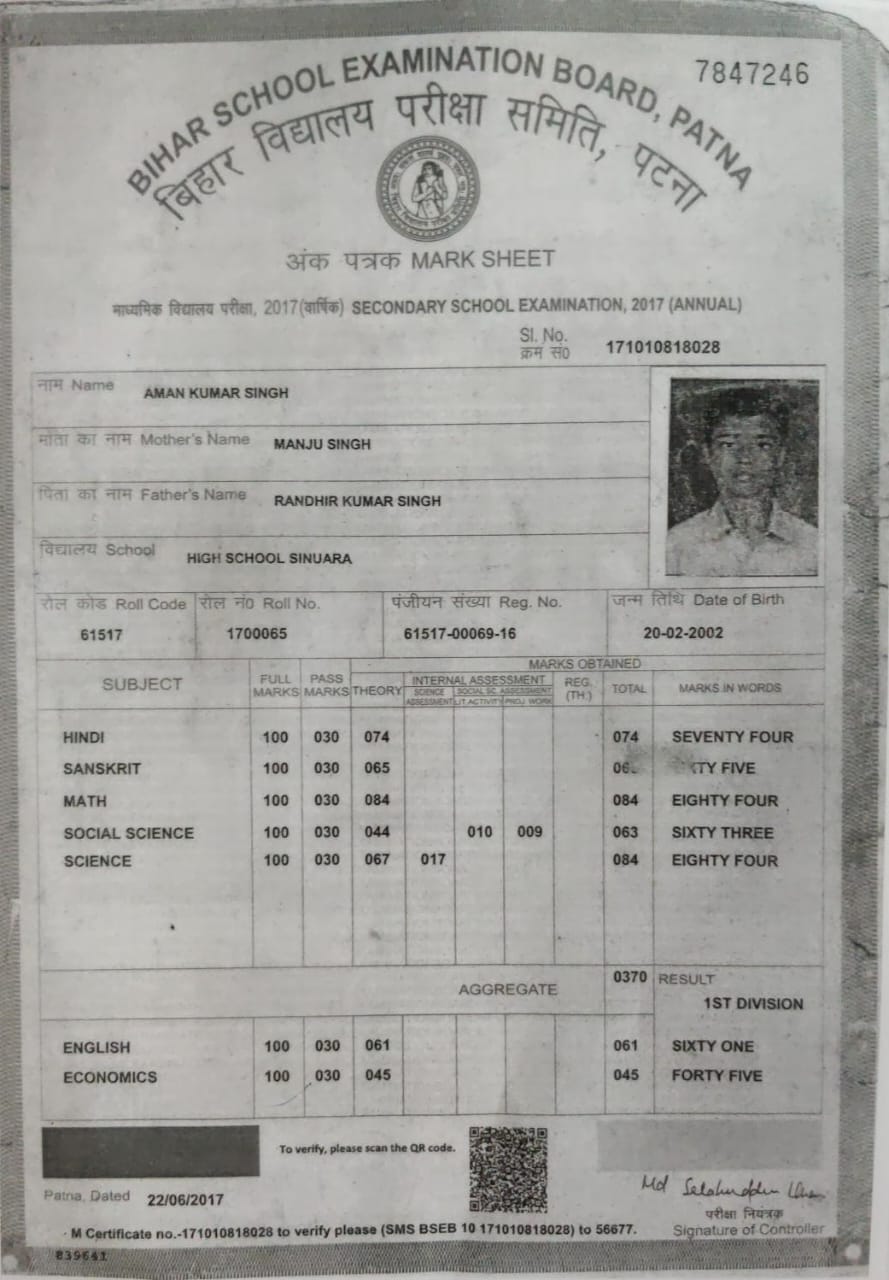 7847246
BIHAR SCHOOL EXAMINATION BOARD, PATNA
बिहार विद्यालय परीक्षा समिति, पटना
अंक पत्रक MARK SHEET
माध्यमिक विद्यालय परीक्षा, 2017(वार्षिक) SECONDARY SCHOOL EXAMINATION, 2017 (ANNUAL)
Sl. No.
क्रम सं0 171010818028
नाम Name AMAN KUMAR SINGH
माता का नाम Mother's Name MANJU SINGH
पिता का नाम Father's Name RANDHIR KUMAR SINGH
विद्यालय School HIGH SCHOOL SINUARA
रौल कोड Roll Code रौल नं0 Roll No. पंजीयन संख्या Reg. No. जन्म तिथि Date of Birth
61517 1700065 61517-00069-16 20-02-2002
MARKS OBTAINED
SUBJECT FULL MARKS PASS MARKS THEORY INTERNAL ASSESSMENT REG. (TH.) TOTAL MARKS IN WORDS
SCIENCE ASSESSMENT SOCIAL SC. ASSESSMENT
LIT.ACTIVITY PROJ. WORK
HINDI 100 030 074 074 SEVENTY FOUR
SANSKRIT 100 030 065 FIVE
MATH 100 030 084 084 EIGHTY FOUR
SOCIAL SCIENCE 100 030 044 010 009 063 SIXTY THREE
SCIENCE 100 030 067 017 084 EIGHTY FOUR
AGGREGATE 0370 RESULT
1ST DIVISION
ENGLISH 100 030 061 061 SIXTY ONE
ECONOMICS 100 030 045 045 FORTY FIVE
To verify, please scan the QR code.
Patna, Dated 22/06/2017
Md
परीक्षा नियंत्रक
Signature of Controller
M Certificate no.-171010818028 to verify please (SMS BSEB 10 171010818028) to 56677.
839641